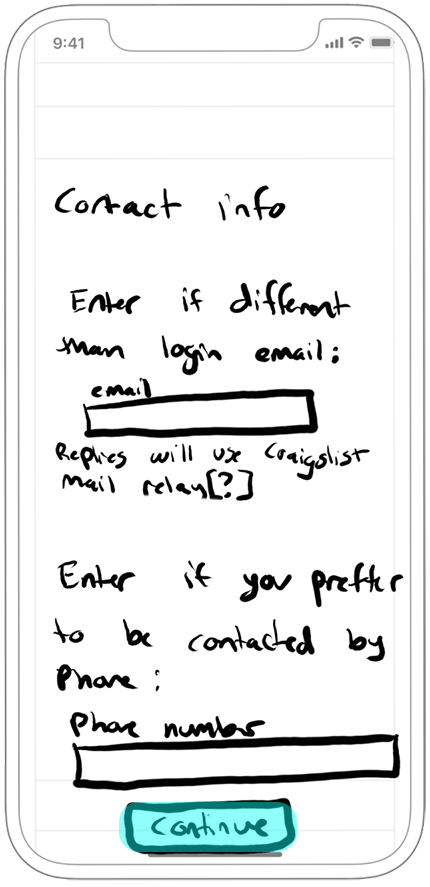 9:41
Contact info
Enter if different
than login email:
email
Replies will use Craigslist
Mail relay[?]
Enter if you preffer
to be contacted by
Phone:
Phone number
Continue